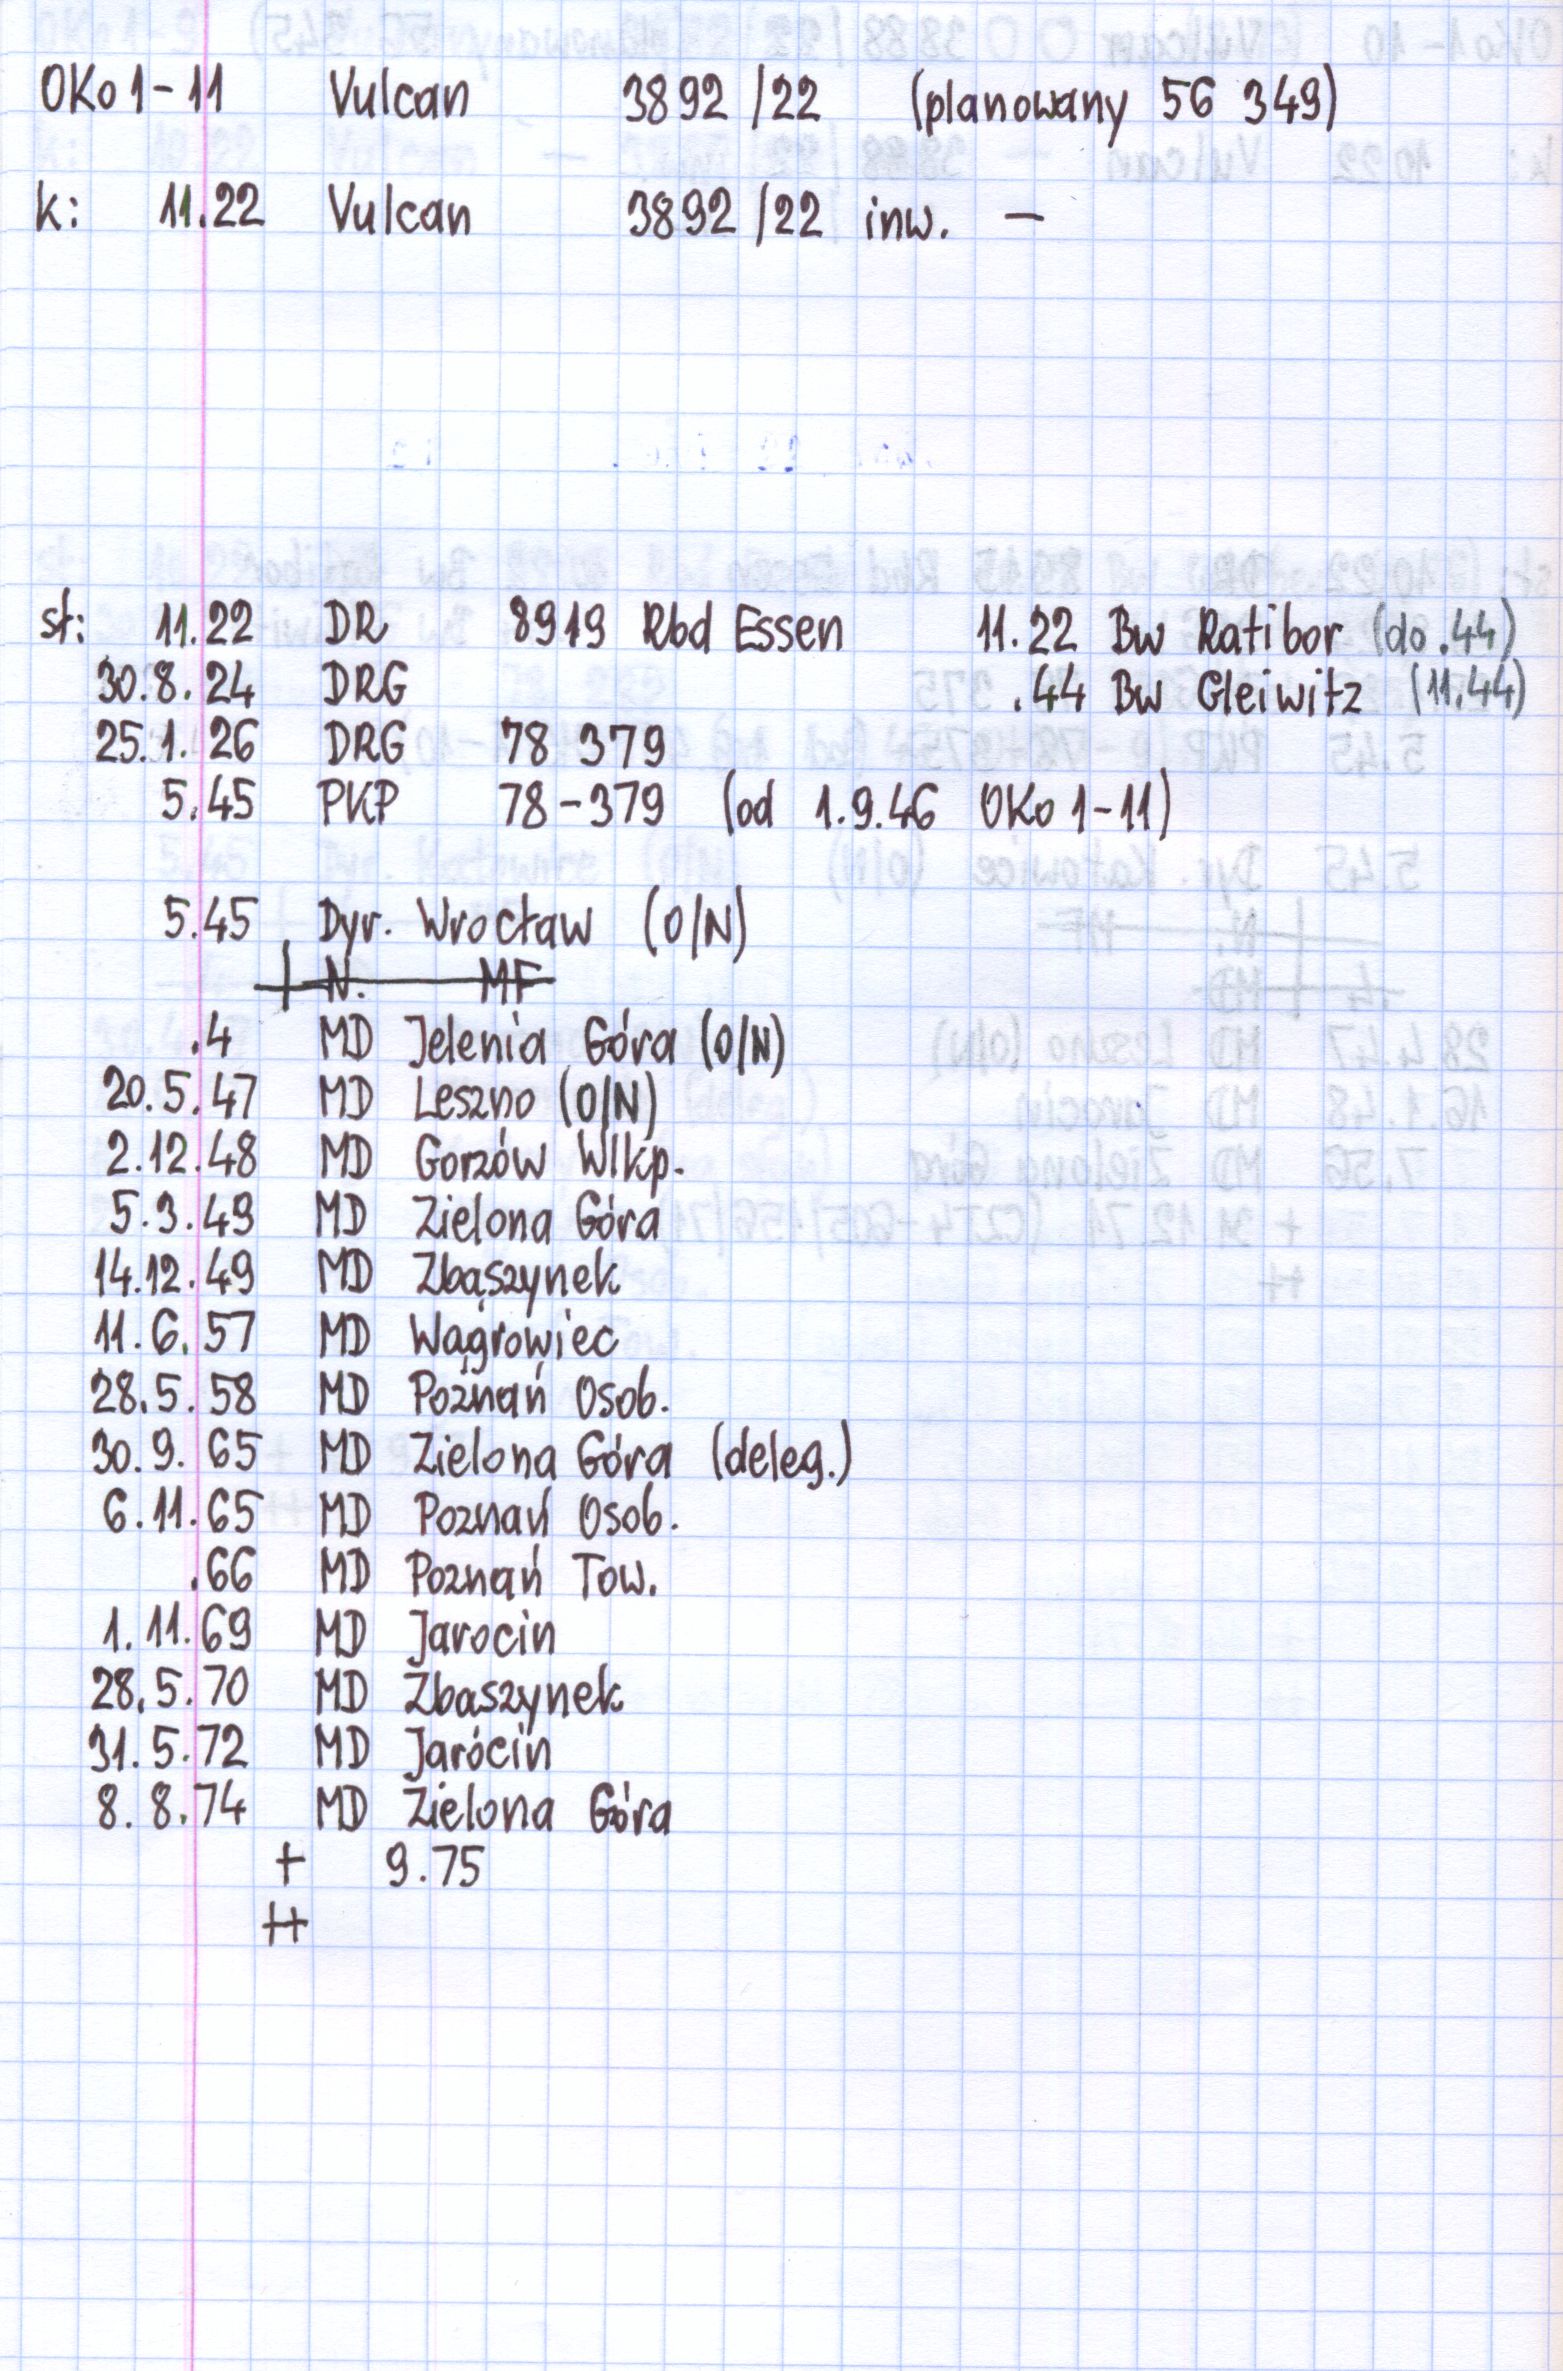 OKo 1-11 Vulcan 3892/22 (planowany 56 349)
k: 11.22 Vulcan 3892/22 inw. —
st: 11.22 DR 8919 Rbd Essen 11.22 Bw Ratibor (do .44)
30.8.24 DRG .44 Bw Gleiwitz (11.44)
25.1.26 DRG 78 379
5.45 PKP 78-379 (od 1.9.46 OKo 1-11)
5.45 Dyr. Wrocław (O/N)
N. MF
.4 MD Jelenia Góra (O/N)
20.5.47 MD Leszno (O/N)
2.12.48 MD Gorzów Wlkp.
5.3.49 MD Zielona Góra
14.12.49 MD Zbąszynek
11.6.57 MD Wągrowiec
28.5.58 MD Poznań Osob.
30.9.65 MD Zielona Góra (deleg.)
6.11.65 MD Poznań Osob.
.66 MD Poznań Tow.
1.11.69 MD Jarocin
28.5.70 MD Zbąszynek
31.5.72 MD Jarocin
8.8.74 MD Zielona Góra
+ 9.75
++